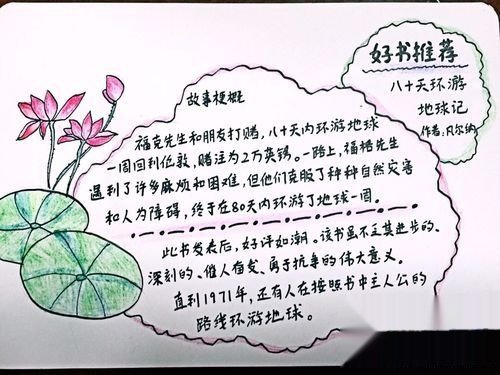 好书推荐
八十天环游
地球记
作者:凡尔纳
故事梗概
福克先生和朋友打赌,八十天内环游地球
一周回到伦敦,赌注为2万英镑。一路上,福格先生
遇到了许多麻烦和困难,但他们克服了种种自然灾害
和人为障碍,终于在80天内环游了地球一周。
此书发表后,好评如潮。该书虽不乏其进步的、
深刻的、催人奋发、勇于抗争的伟大意义。
直到1971年,还有人在按照书中主人公的
路线环游地球。